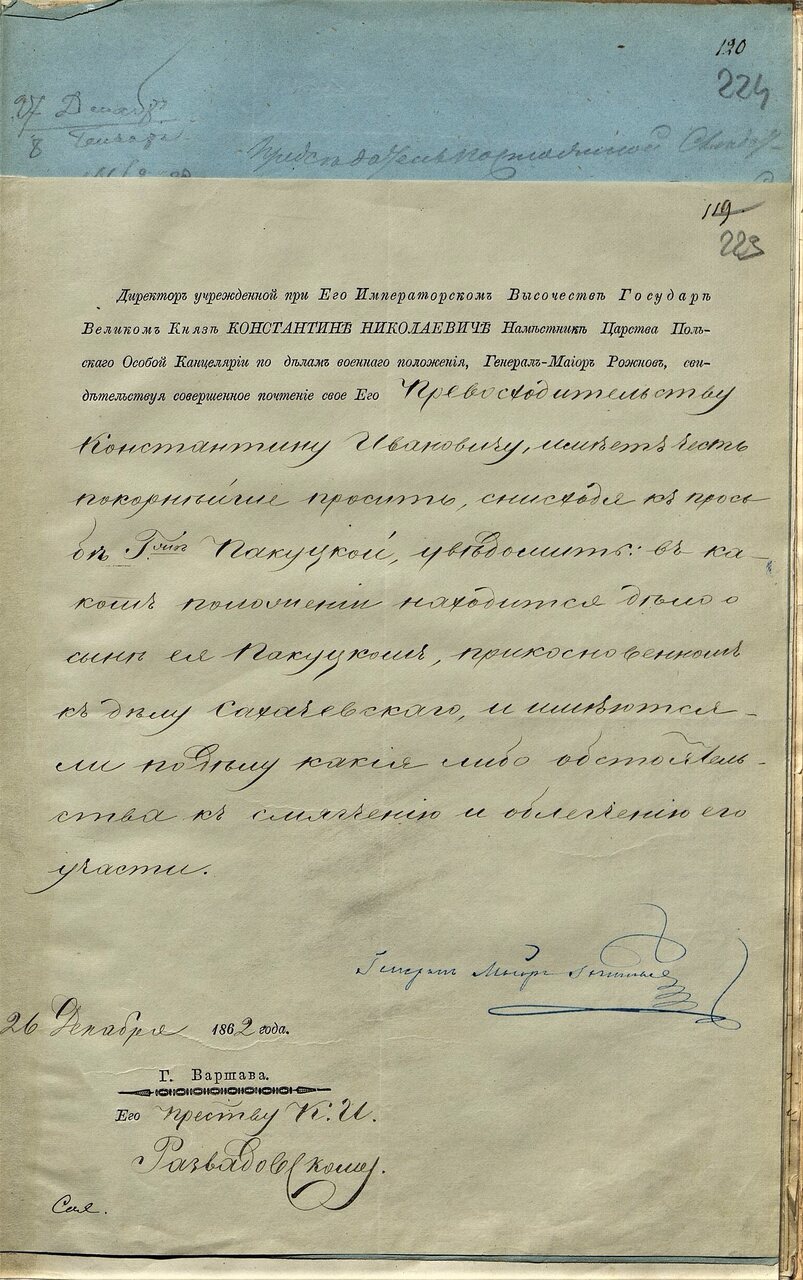 120
224
27 Декабр
8 Генваря
119
223
Директоръ учрежденной при Его Императорскомъ Высочествѣ Государѣ
Великомъ Князѣ КОНСТАНТИНѢ НИКОЛАЕВИЧѢ Намѣстникѣ Царства Поль-
скаго Особой Канцеляріи по дѣламъ военнаго положенія, Генералъ-Маіоръ Рожновъ, сви-
дѣтельствуя совершенное почтеніе свое Его Превосходительству
Константину Ивановичу, имѣетъ честь
покорнѣйше просить, снисходя къ прось
бѣ Г.жи Пакуцкой, увѣдомить: въ ка-
комъ положеніи находится дѣло о
сынѣ ея Пакуцкомъ, прикосновенномъ
къ дѣлу Сахачевскаго, и имѣются-
ли по дѣлу какія либо обстоятель-
ства къ смягченію и облегченію его
участи.
Генералъ Маіоръ
26 Декабря 1862 года.
Г. Варшава.
Его Преству К. И.
Развадовскому.